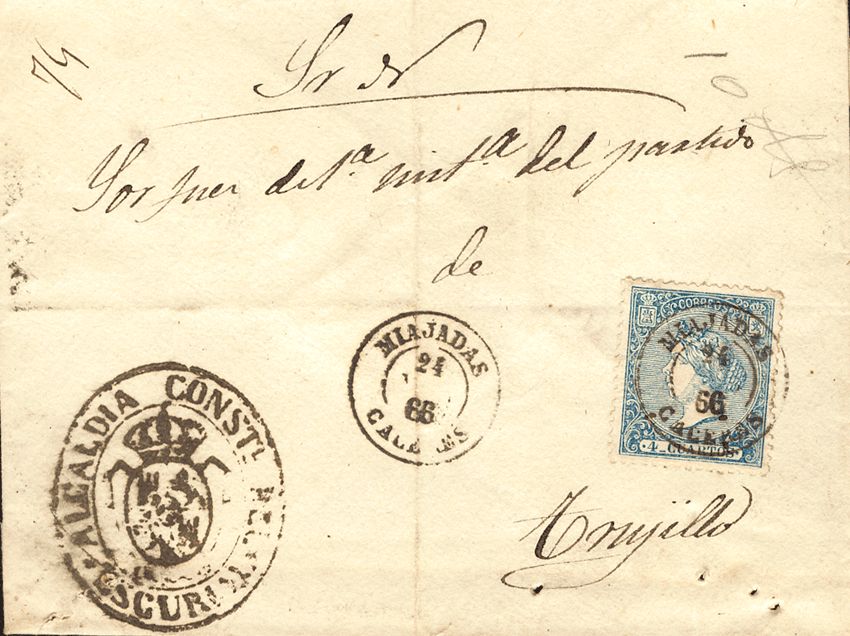 74
Sr. D.
Sor Juez de 1ª instª del partido
de
MIAJADAS
24
66
CACERES
CORREOS
MIAJADAS
24
66
CACERES
4 CUARTOS
ALCALDIA CONSTL. DE
ESCURIAL
Trujillo